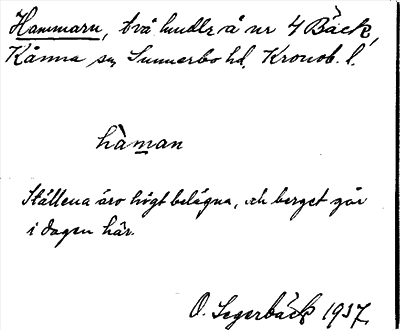 Hammarn, två hmdlr å nr 4 Bäck,
Kånna sn, Sunnerbo hd, Kronob. l.
hàman
Ställena äro högt belägna, och berget går
i dagen här.
O. Segerbäck 1937.